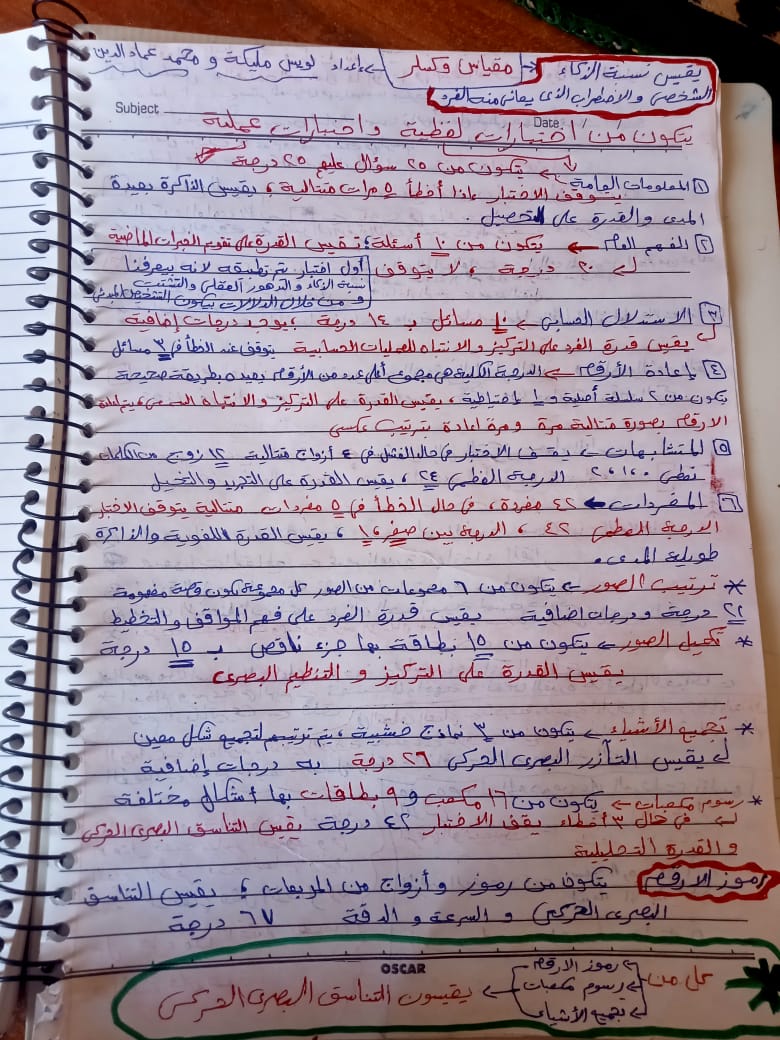 يقيس نسبة الذكاء ← مقياس وكسلر ← إعداد لويس مليكة و محمد عماد الدين
الشخصي والاضطراب الذي يعاني منه الفرد
Subject Date: / /
يتكون من اختبارات لفظية واختبارات عملية
① المعلومات العامة ← يتكون من ٢٥ سؤال عليهم ٢٥ درجة
يتوقف الاختبار إذا أخطأ ٥ مرات متتالية ، يقيس الذاكرة بعيدة
المدى والقدرة على التحصيل .
② الفهم العام ← يتكون من ١٠ أسئلة ، تقيس القدرة على تقويم الخبرات الماضية
٢٠ درجة ، لا يتوقف
أول اختبار يتم تطبيقه لانه بيعرفنا
نسبة الذكاء والتدهور العقلي والتشتت
و من خلال الدلالات بيكون التشخيص المبدئي
③ الاستدلال الحسابي ← ١٠ مسائل بـ ١٤ درجة ، يوجد درجات إضافية
يقيس قدرة الفرد على التركيز والانتباه للعمليات الحسابية يتوقف عند الخطأ في ٣ مسائل
④ إعادة الأرقام ← الدرجة الكلية هي مجموع أعلى عدد من الأرقام يعيده بطريقة صحيحة
يتكون من ٢ سلسلة أصلية و ١ إحتياطية ، يقيس القدرة على التركيز والانتباه يتم إعادة
الارقام بصورة متتالية مرة و مرة اعادة بترتيب عكسي
⑤ المتشابهات ← يقف الاختبار في حال الفشل في ٤ أزواج متتالية ١٢ زوج من الكلمات
تعطى ٠ ، ١ ، ٢ الدرجة العظمى ٢٤ ، يقيس القدرة على التجريد والتخيل
⑥ المفردات ← ٤٢ مفردة ، في حال الخطأ في ٥ مفردات متتالية يتوقف الاختبار
الدرجة العظمى ٤٢ ، الدرجة بين صفر ، ١ ، يقيس القدرة اللغوية والذاكرة
طويلة المدى .
* ترتيب الصور ← يتكون من ٦ مجموعات من الصور كل مجموعة تكون قصة مفهومة
٢١ درجة ودرجات اضافية يقيس قدرة الفرد على فهم المواقف والتخطيط
* تكميل الصور ← يتكون من ١٥ بطاقة بها جزء ناقص بـ ١٥ درجة
يقيس القدرة على التركيز و التنظيم البصري
* تجميع الأشياء ← يتكون من ٣ نماذج خشبية ، يتم ترتيبهم لتجميع شكل معين
يقيس التآزر البصري الحركي ٢٦ درجة به درجات إضافية
* رسوم مكعبات ← يتكون من ١٦ مكعب و ٩ بطاقات بها أشكال مختلفة
في حال ٣ أخطاء يقف الاختبار ٤٢ درجة يقيس التناسق البصري الحركي
و القدرة التحليلية
رموز الارقام يتكون من رموز و أزواج من المربعات ، يقيس التناسق
البصري الحركي و السرعة و الدقة ٦٧ درجة
OSCAR
كل من ← رموز الارقام
← رسوم مكعبات
← تجميع الأشياء
← يقيسون التناسق البصري الحركي